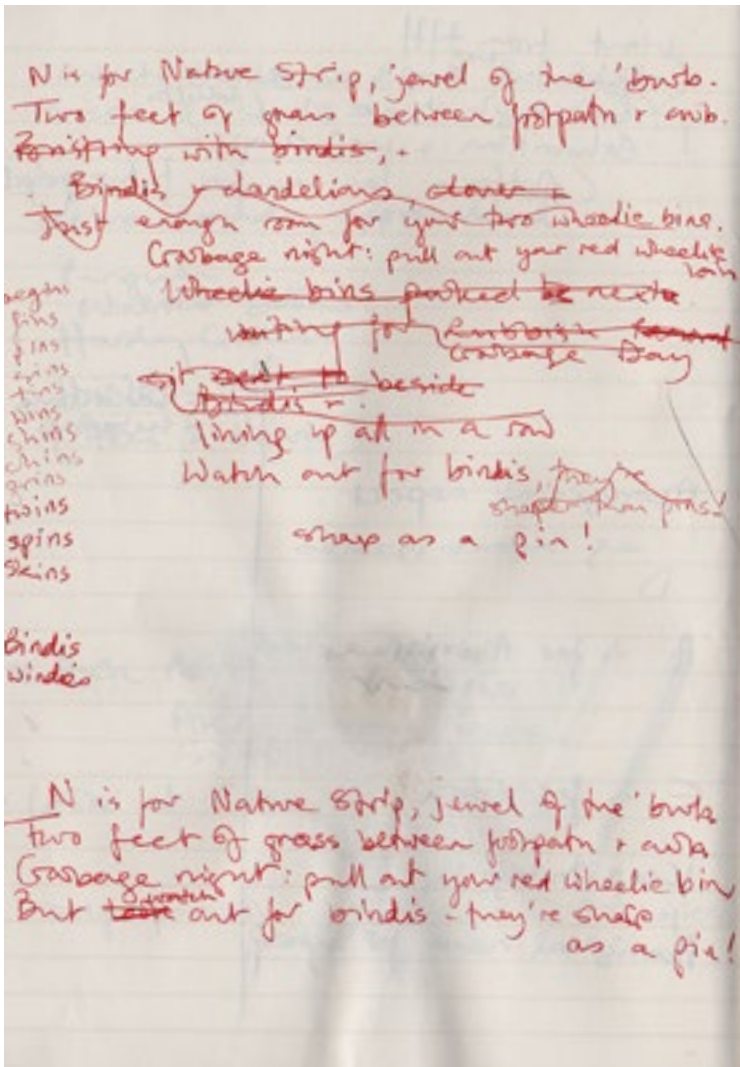 N is for Nature Strip, jewel of the 'burb.
Two feet of grass between footpath + curb.
Bristling with bindis,
Bindis + dandelions, clover
Just enough room for your two wheelie bins.
Garbage night: pull out your red wheelie bin
Wheelie bins parked be next
waiting for Rubbish
Garbage Day
sit next to beside
bindis +
lining up all in a row
Watch out for bindis, they're
sharper than pins!
sharp as a pin!
begins
fins
pins
spins
tins
wins
shins
chins
grins
twins
spins
skins
Bindis
windies
N is for Nature Strip, jewel of the 'burb
Two feet of grass between footpath + curb
Garbage night: pull out your red wheelie bin
But watch out for bindis - they're sharp
as a pin!